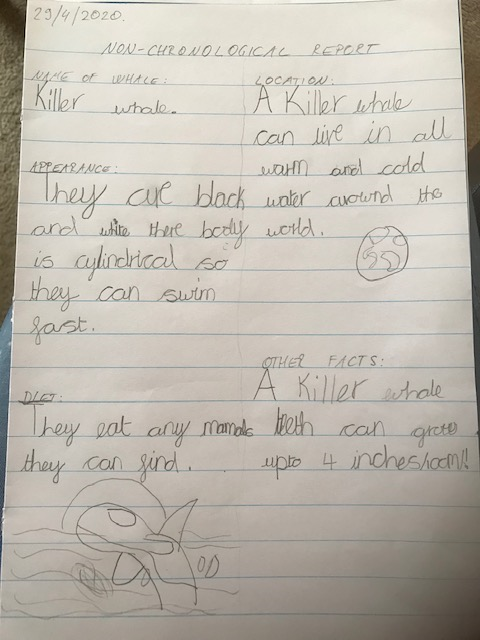 29/4/2020.
NON-CHRONOLOGICAL REPORT
NAME OF WHALE:
Killer whale.
LOCATION:
A Killer whale
can live in all
warm and cold
water arownd the
world.
APPEARANCE:
They are black
and white there body
is cylindrical so
they can swim
fast.
DIET:
They eat any mamals
they can find.
OTHER FACTS:
A Killer whale
teeth can grow
upto 4 inches/10cm!!